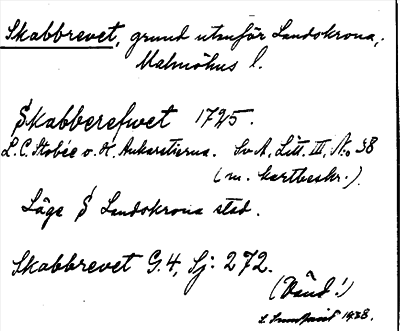 Skabbrevet, grund utanför Landskrona,
Malmöhus l.
Skabberefwet 1725.
L. C. Stobée o. H. Ankarstierna. Sv. A, Litt. III, No 38
(m. kartbeskr.).
Läge § Landskrona stad.
Skabbrevet G. 4, Sj: 272.
(Vänd!)
1938.